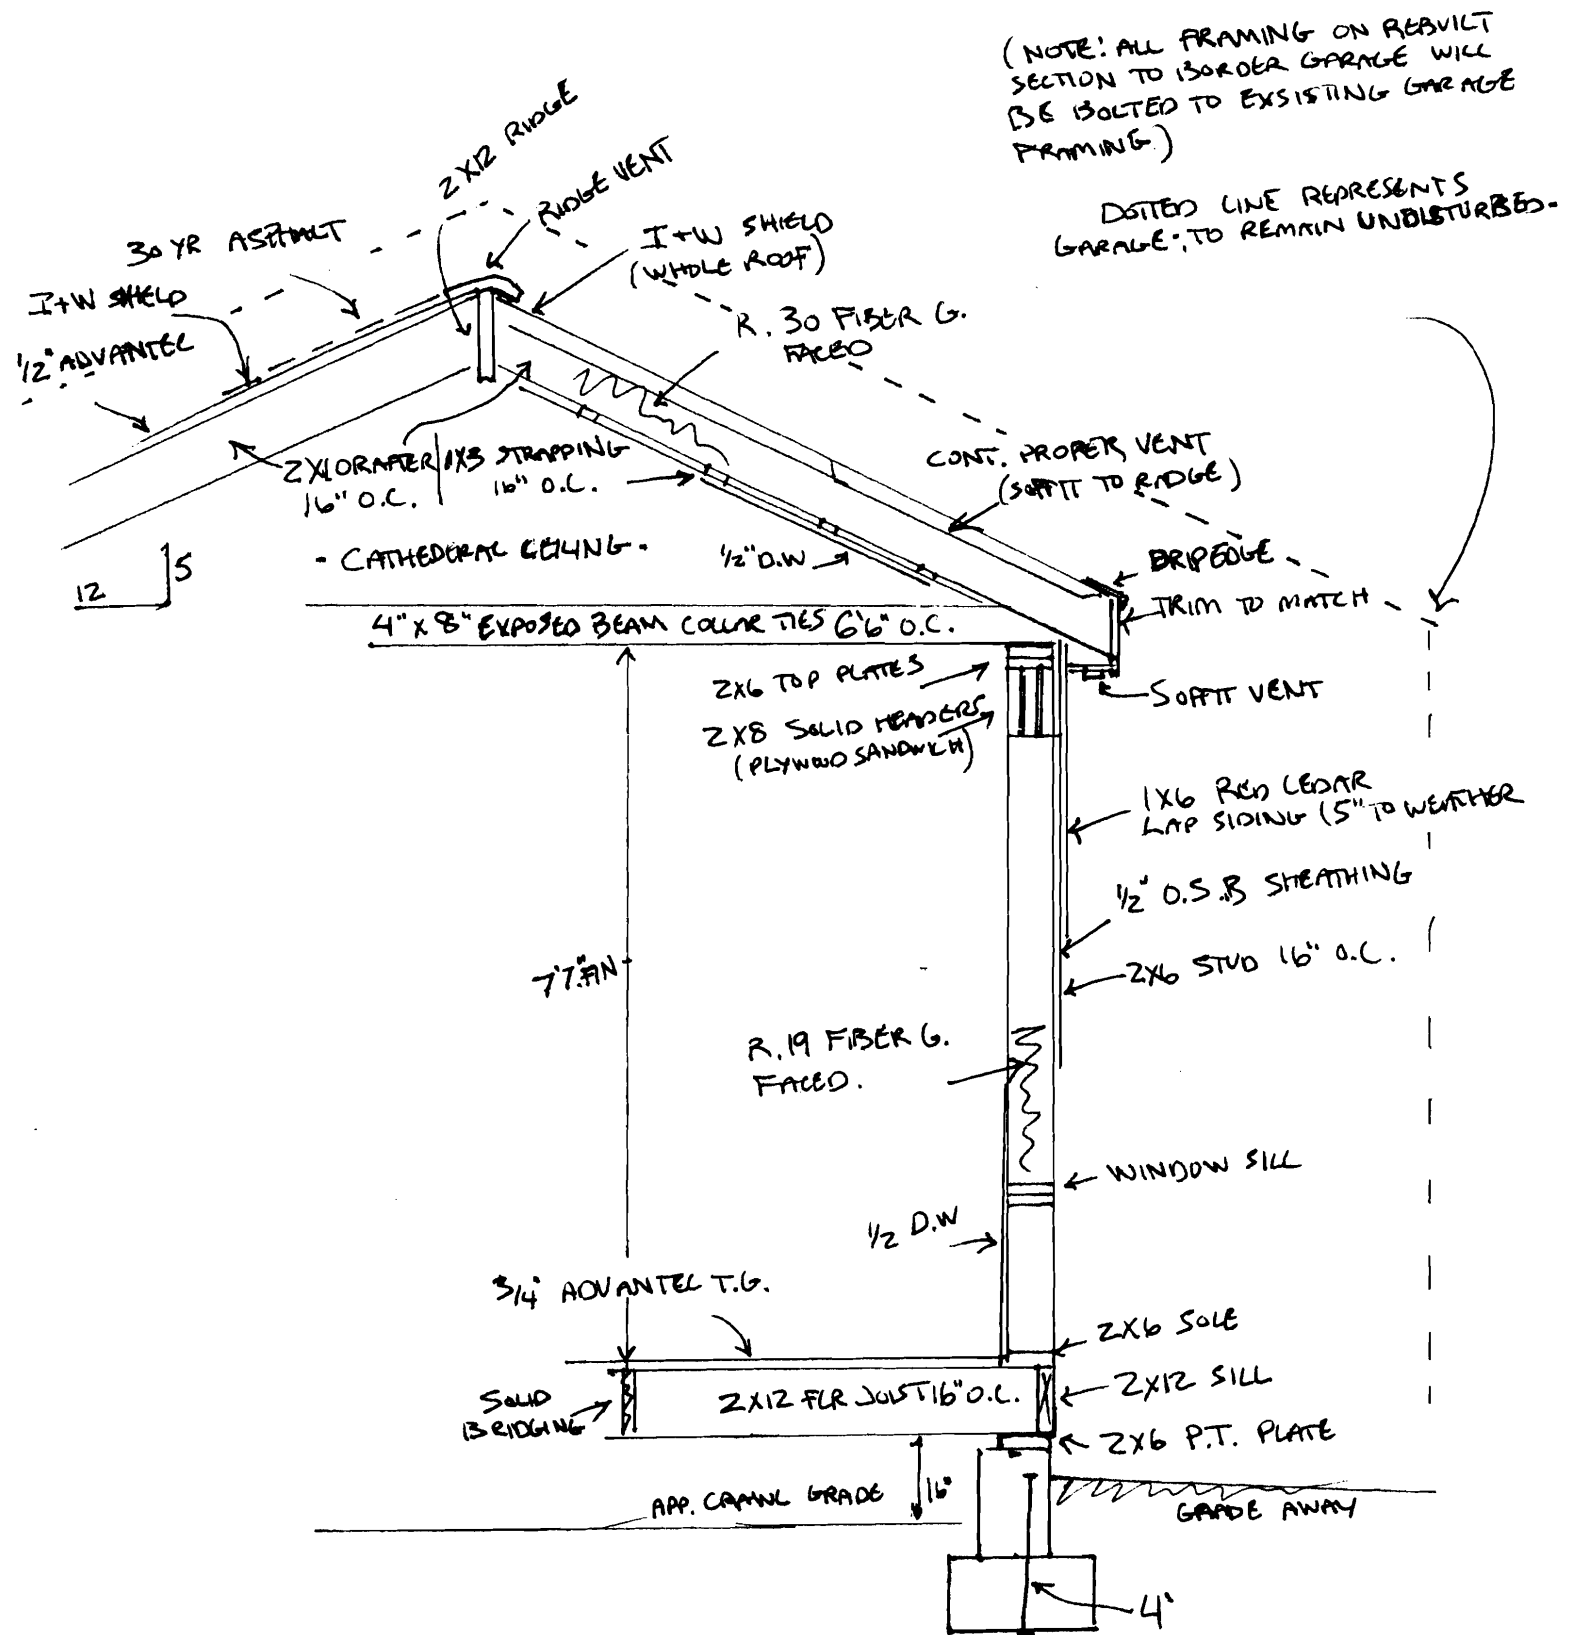 (NOTE: ALL FRAMING ON REBUILT
SECTION TO BORDER GARAGE WILL
BE BOLTED TO EXSISTING GARAGE
FRAMING.)
DOTTED LINE REPRESENTS
GARAGE; TO REMAIN UNDISTURBED.
2X12 RIDGE
RIDGE VENT
30 YR ASPHALT
I+W SHIELD
(WHOLE ROOF)
I+W SHIELD
1/2" ADVANTEC
R.30 FIBER G.
FACED
2X10 RAFTER
16" O.C.
1X3 STRAPPING
16" O.C.
CONT. PROPER VENT
(SOFFIT TO RIDGE)
- CATHEDERAL CEILING -
1/2" D.W
5
12
DRIPEDGE
TRIM TO MATCH
4" X 8" EXPOSED BEAM COLLAR TIES 6'6" O.C.
2X6 TOP PLATES
SOFFIT VENT
2X8 SOLID HEADERS
(PLYWOOD SANDWICH)
1X6 RED CEDAR
LAP SIDING (5" TO WEATHER
1/2" O.S.B SHEATHING
2X6 STUD 16" O.C.
7'7" FIN
R.19 FIBER G.
FACED.
WINDOW SILL
1/2 D.W
3/4" ADVANTEC T.G.
2X6 SOLE
SOLID
BRIDGING
2X12 FLR JOIST 16" O.C.
2X12 SILL
2X6 P.T. PLATE
APP. CRAWL GRADE
16"
GRADE AWAY
4'